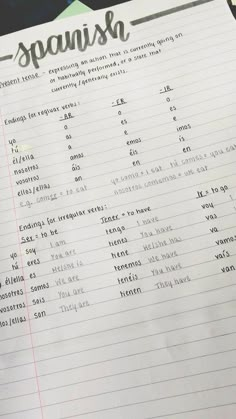 - spanish -
Present tense - expressing an action that is currently going on
or habitually performed, or a state that
currently / generally exists.
Endings for regular verbs:
-AR -ER -IR
yo o o o
tú as es es
él/ella a e e
nosotros amos emos imos
vosotros áis éis ís
ellos/ellas an en en
e.g. comer = to eat
yo como = I eat
nosotros comemos = we eat
Endings for irregular verbs:
Ser = to be Tener = to have Ir = to go
yo soy I am tengo I have voy
tú eres You are tienes You have vas
él/ella es He/she is tiene He/she has va
nosotros somos We are tenemos We have vamos
vosotros sois You are tenéis You have vais
ellos/ellas son They are tienen They have van